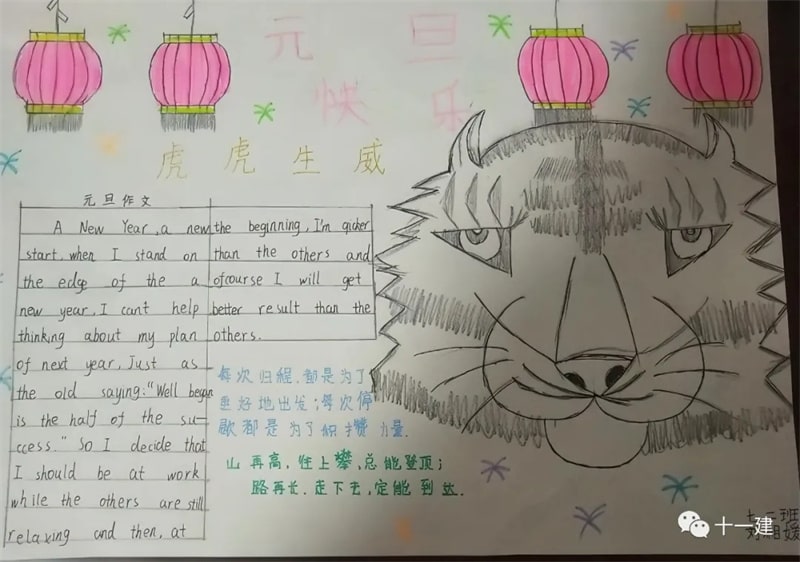 元旦
快乐
虎虎生威
元旦作文
A New Year, a new
start, when I stand on
the edge of the a
new year, I can't help
thinking about my plan
of next year, Just as
the old saying: "Well began
is the half of the su-
ccess." So I decide that
I should be at work
while the others are still
relaxing and then, at
the beginning, I'm qicker
than the others and
ofcourse I will get
better result than the
others.
每次归程,都是为了
更好地出发;每次停
歇都是为了积攒力量.
山再高,往上攀,总能登顶;
路再长,走下去,定能到达.
十一建